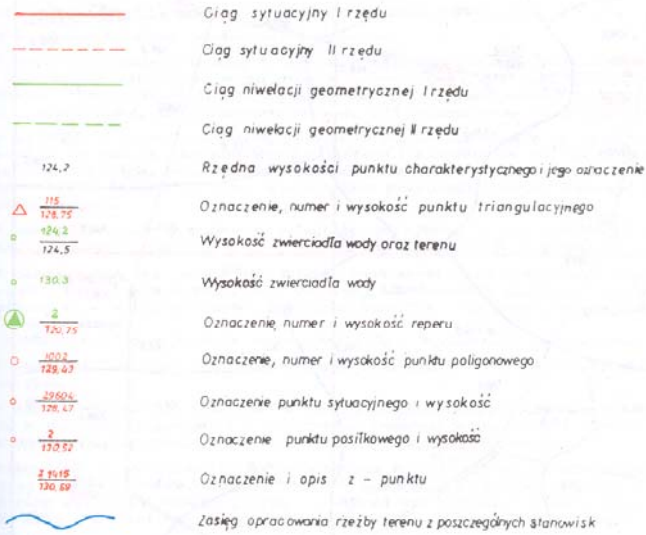 Ciąg sytuacyjny I rzędu
Ciąg sytuacyjny II rzędu
Ciąg niwelacji geometrycznej I rzędu
Ciąg niwelacji geometrycznej II rzędu
124,2 Rzędna wysokości punktu charakterystycznego i jego oznaczenie
115
128,75 Oznaczenie, numer i wysokość punktu triangulacyjnego
124,2
124,5 Wysokość zwierciadła wody oraz terenu
130,3 Wysokość zwierciadła wody
2
120,75 Oznaczenie, numer i wysokość reperu
1002
129,47 Oznaczenie, numer i wysokość punktu poligonowego
29604
128,47 Oznaczenie punktu sytuacyjnego i wysokość
2
130,52 Oznaczenie punktu posiłkowego i wysokość
Z 1415
130,59 Oznaczenie i opis z - punktu
Zasięg opracowania rzeźby terenu z poszczególnych stanowisk